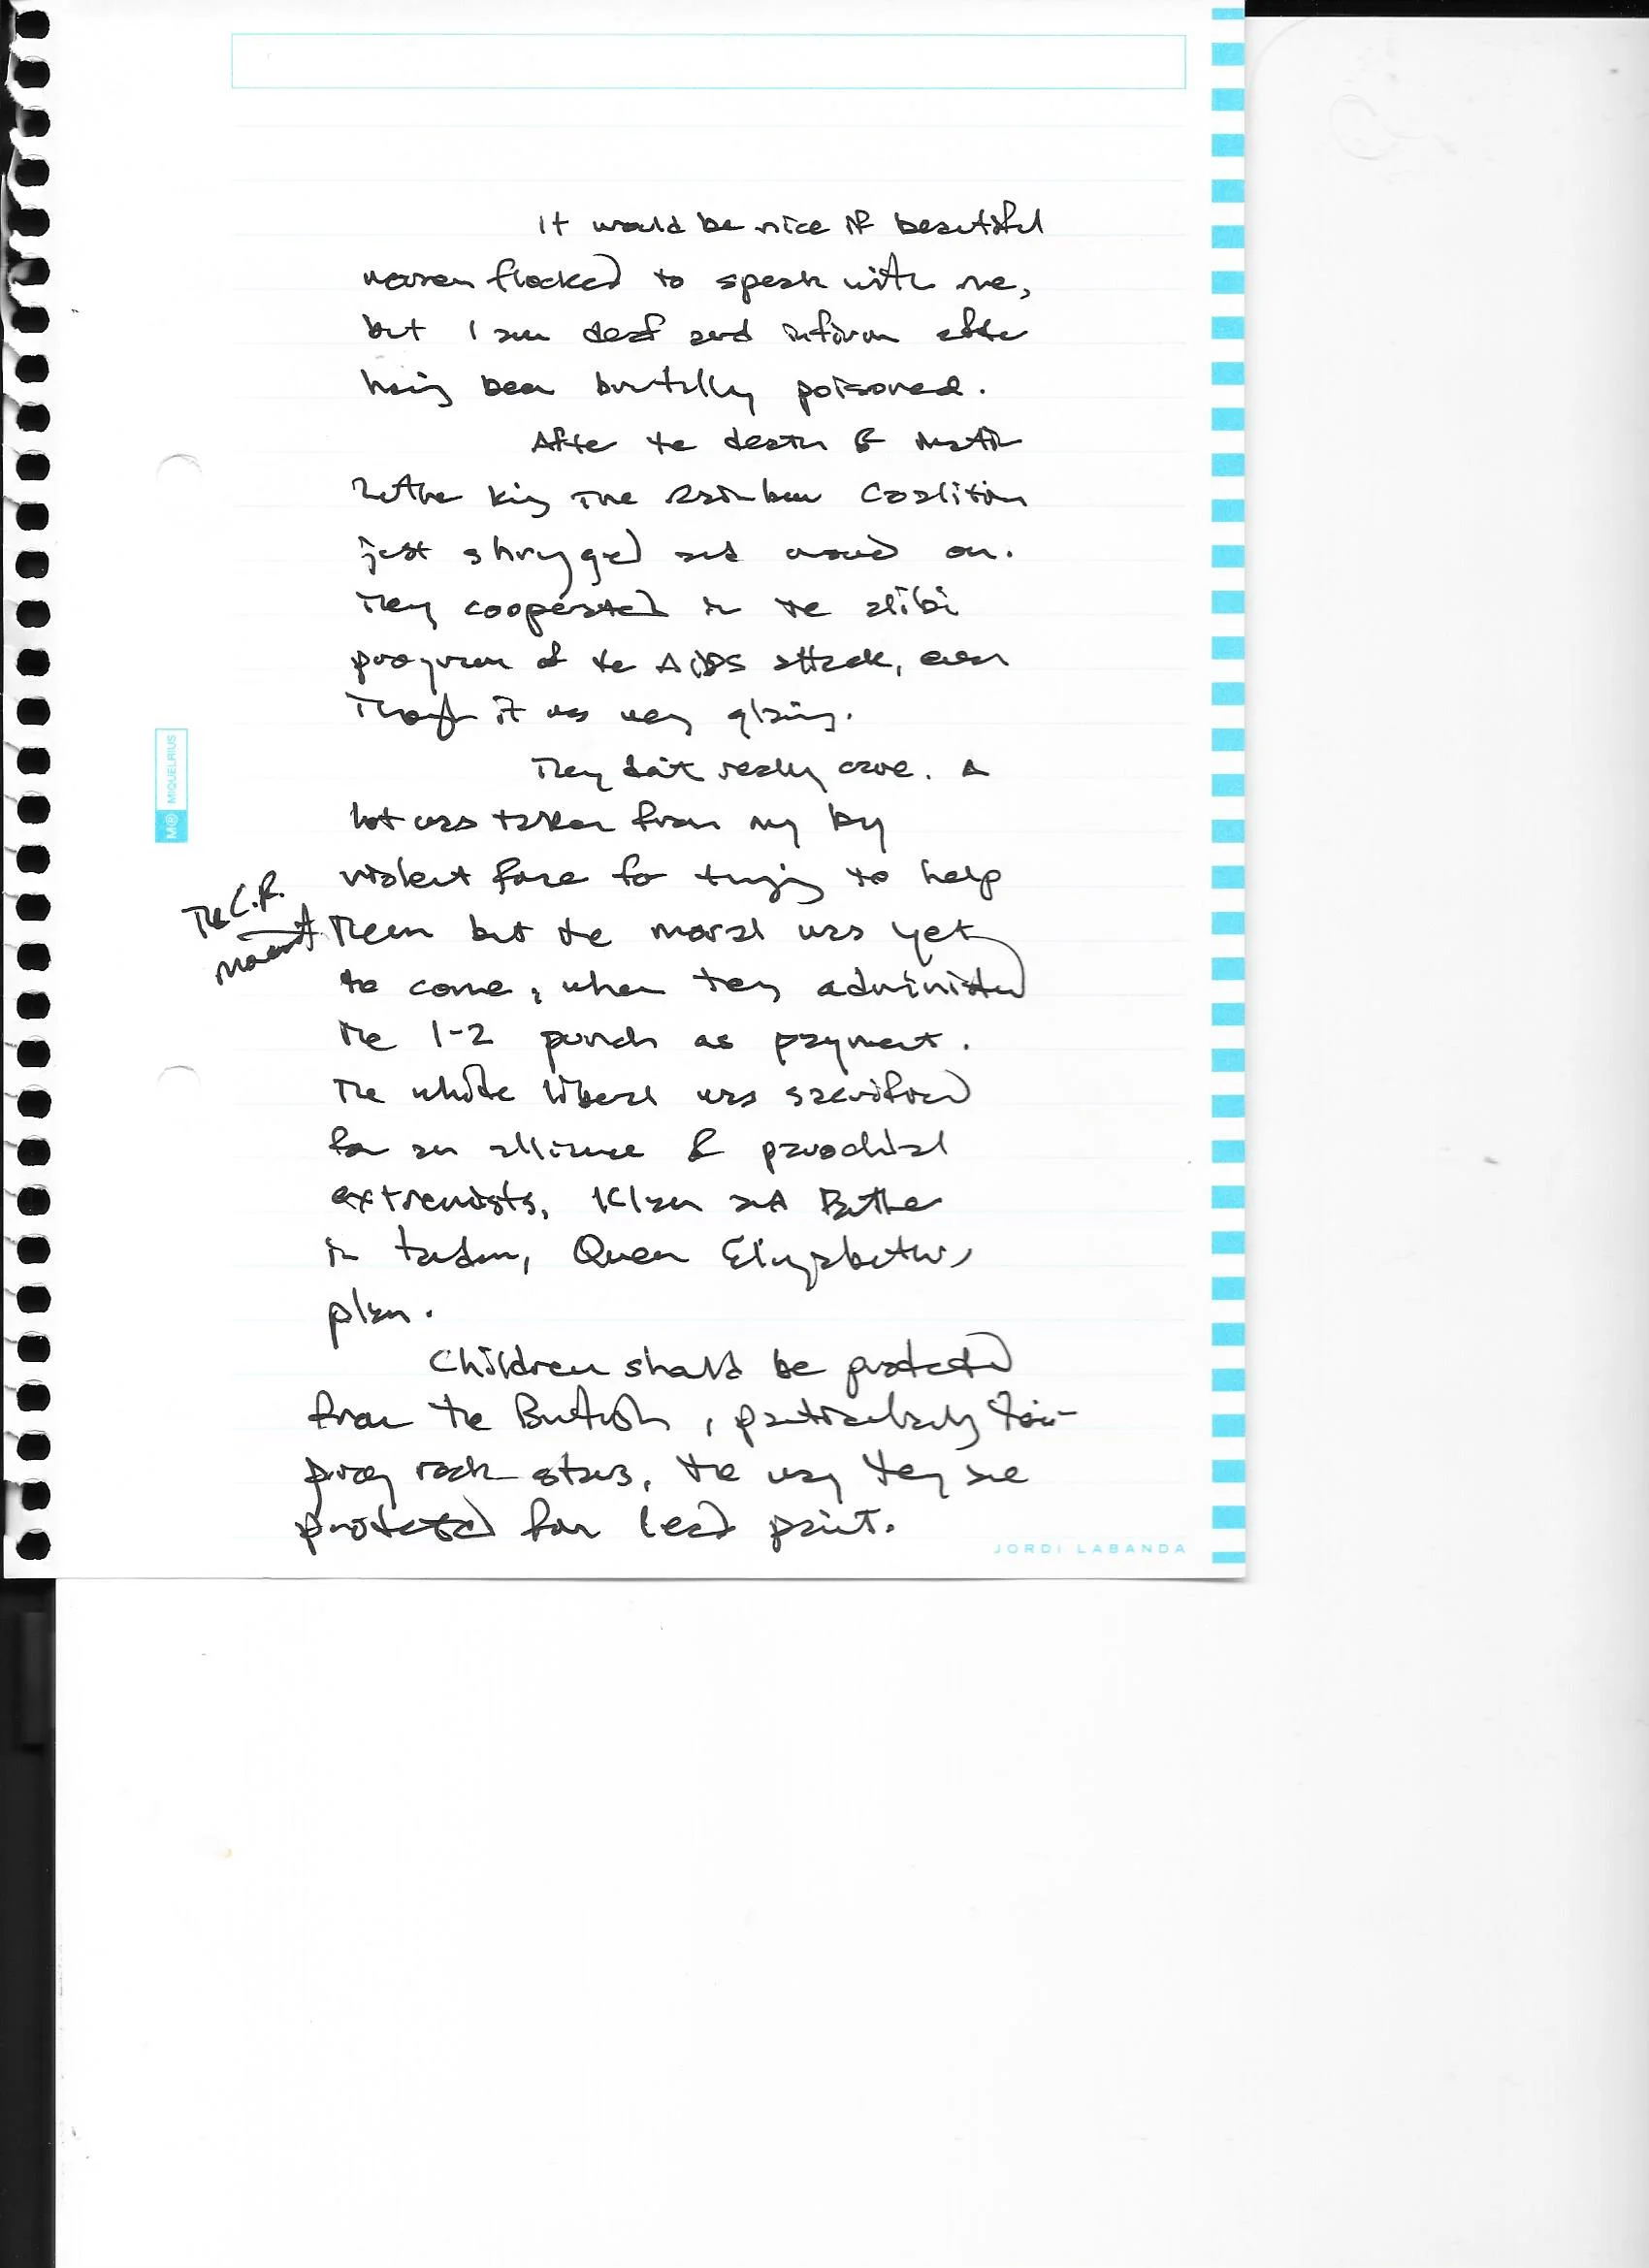 It would be nice if beautiful
women flocked to speak with me,
but I am deaf and infirm after
having been brutally poisoned.
After the death of Martin
Luther King The Rainbow Coalition
just shrugged and moved on.
They cooperated in the alibi
program of the AIDS attack, even
though it was very glaring.
They don't really care. A
lot was taken from my by
violent force for trying to help
The C.R.
movement
them but the moral was yet
to come, when they administered
the 1-2 punch as payment.
The white liberal was sacrificed
for an alliance of parochial
extremists, Klan and Panther
in tandem, Queen Elizabeth's
plan.
Children should be protected
from the British, particularly their
prog rock stars, the way they are
protected from lead paint.
M® MIQUELRIUS
JORDI LABANDA